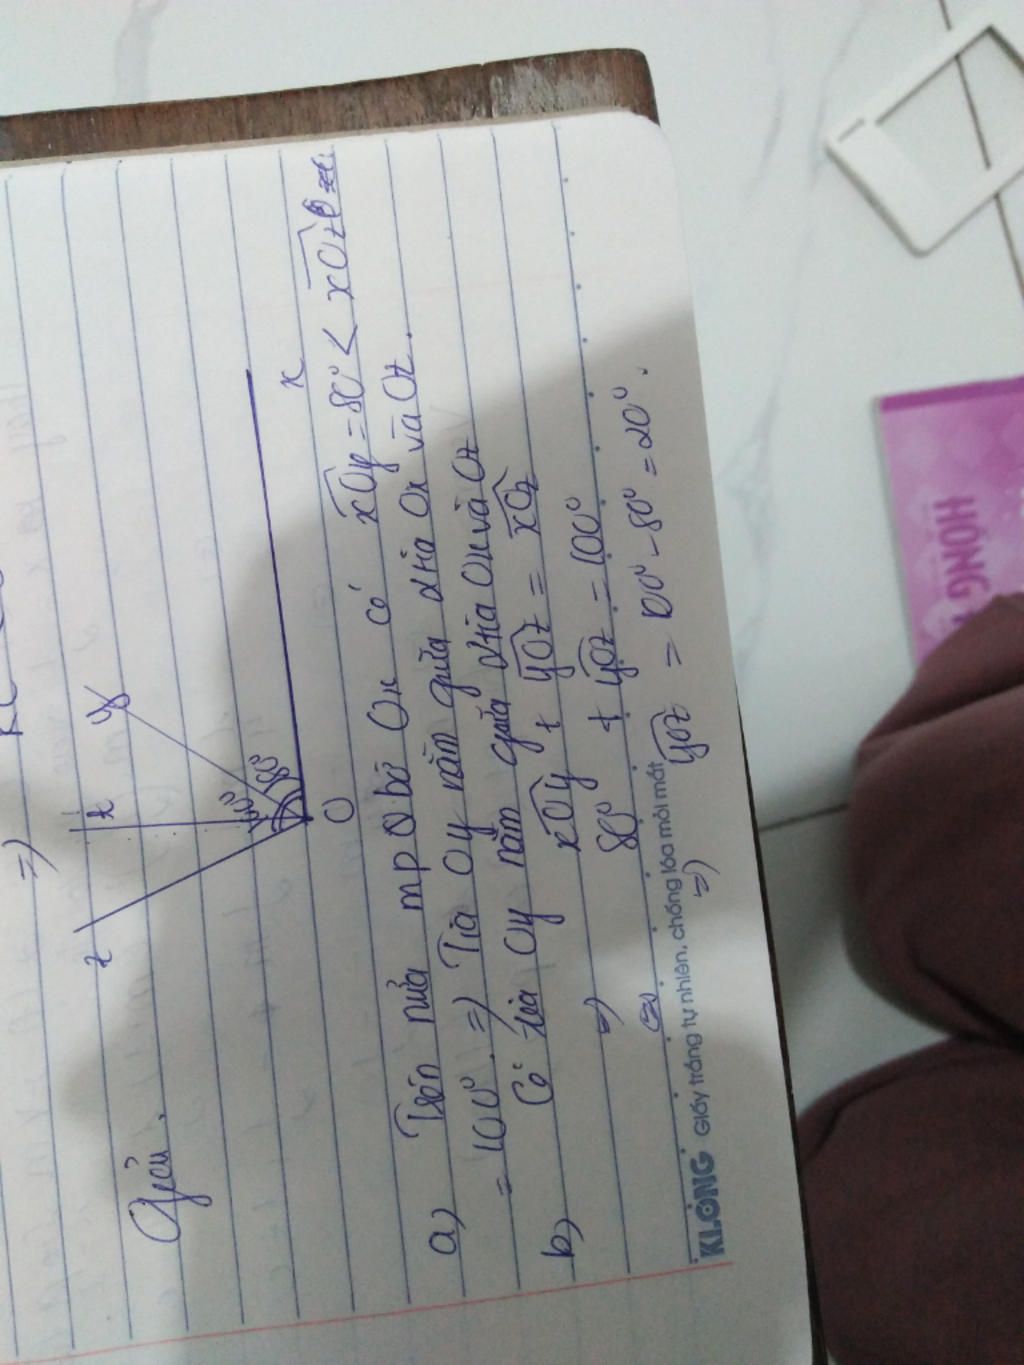 =)
Giải.
z
t
y
100°
80°
O
x
a) Trên nửa mp bờ Ox có xOy = 80° < xOz
= 100°. =) Tia Oy nằm giữa 2 tia Ox và Oz.
b) Có tia Oy nằm giữa 2 tia Ox và Oz
=) xOy + yOz = xOz
80° + yOz = 100°
=) yOz = 100° - 80° = 20°.
KLONG Giấy trắng tự nhiên, chống lóa mỏi mắt
HỒNG